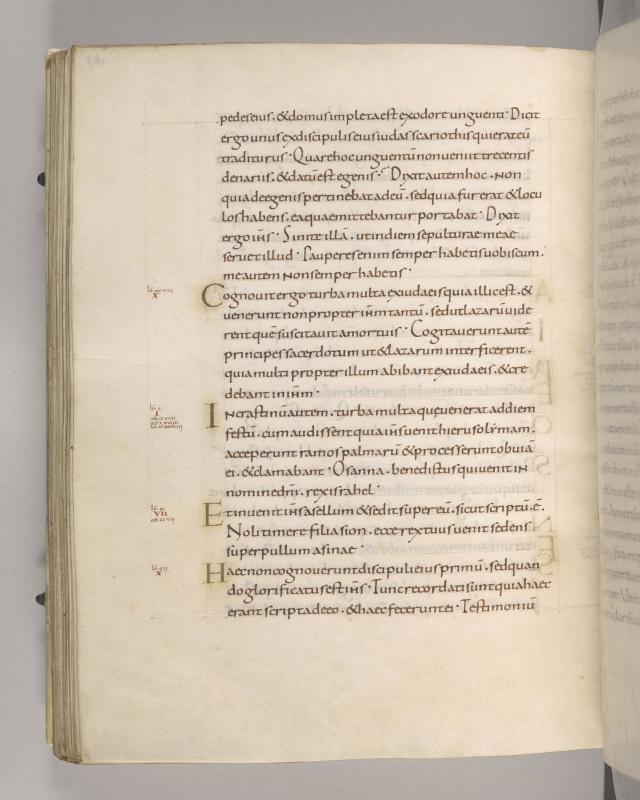 pedes eius · & domus impleta est ex odore unguenti · Dicit
ergo unus ex discipulis eius iudas scariothis qui erat eū
traditurus · Quare hoc unguentū non veniit trecentis
denariis · & datū est egenis · Dixit autem hoc · Non
quia de egenis pertinebat ad eū · sed quia fur erat & locu
los habens · ea quae mittebantur portabat · Dixit
ergo ihs · Sinite illā · ut in diem sepulturae meae
servet illud · Pauperes enim semper habetis uobiscum ·
me autem Non semper habetis ·
Cognouit ergo turba multa ex iudaeis quia illic est · &
uenerunt non propter ihm tantū · sed ut lazarū uide
rent quē suscitauit a mortuis · Cogitauerunt autē
principes sacerdotum ut & lazarum interficerent ·
quia multi propter illum abibant ex iudaeis · & cre
debant in ihm ·
In crastinū autem · turba multa quę uenerat ad diem
festū · cum audissent quia ihs uenit hierusolymam ·
acceperunt ramos palmarū & processerunt obuiā
ei · & clamabant · Osanna · benedictus qui uenit in
nomine dni · rex israhel ·
Et inuenit ihs asellum & sedit super eū · sicut scriptū · ē ·
Noli timere filia sion · ecce rex tuus uenit sedens
super pullum asinae ·
Haec non cognouerunt discipuli eius primū · sed quan
do glorificatus est ihs · Tunc recordati sunt quia haec
erant scripta de eo · & haec fecerunt ei · Testimoniū